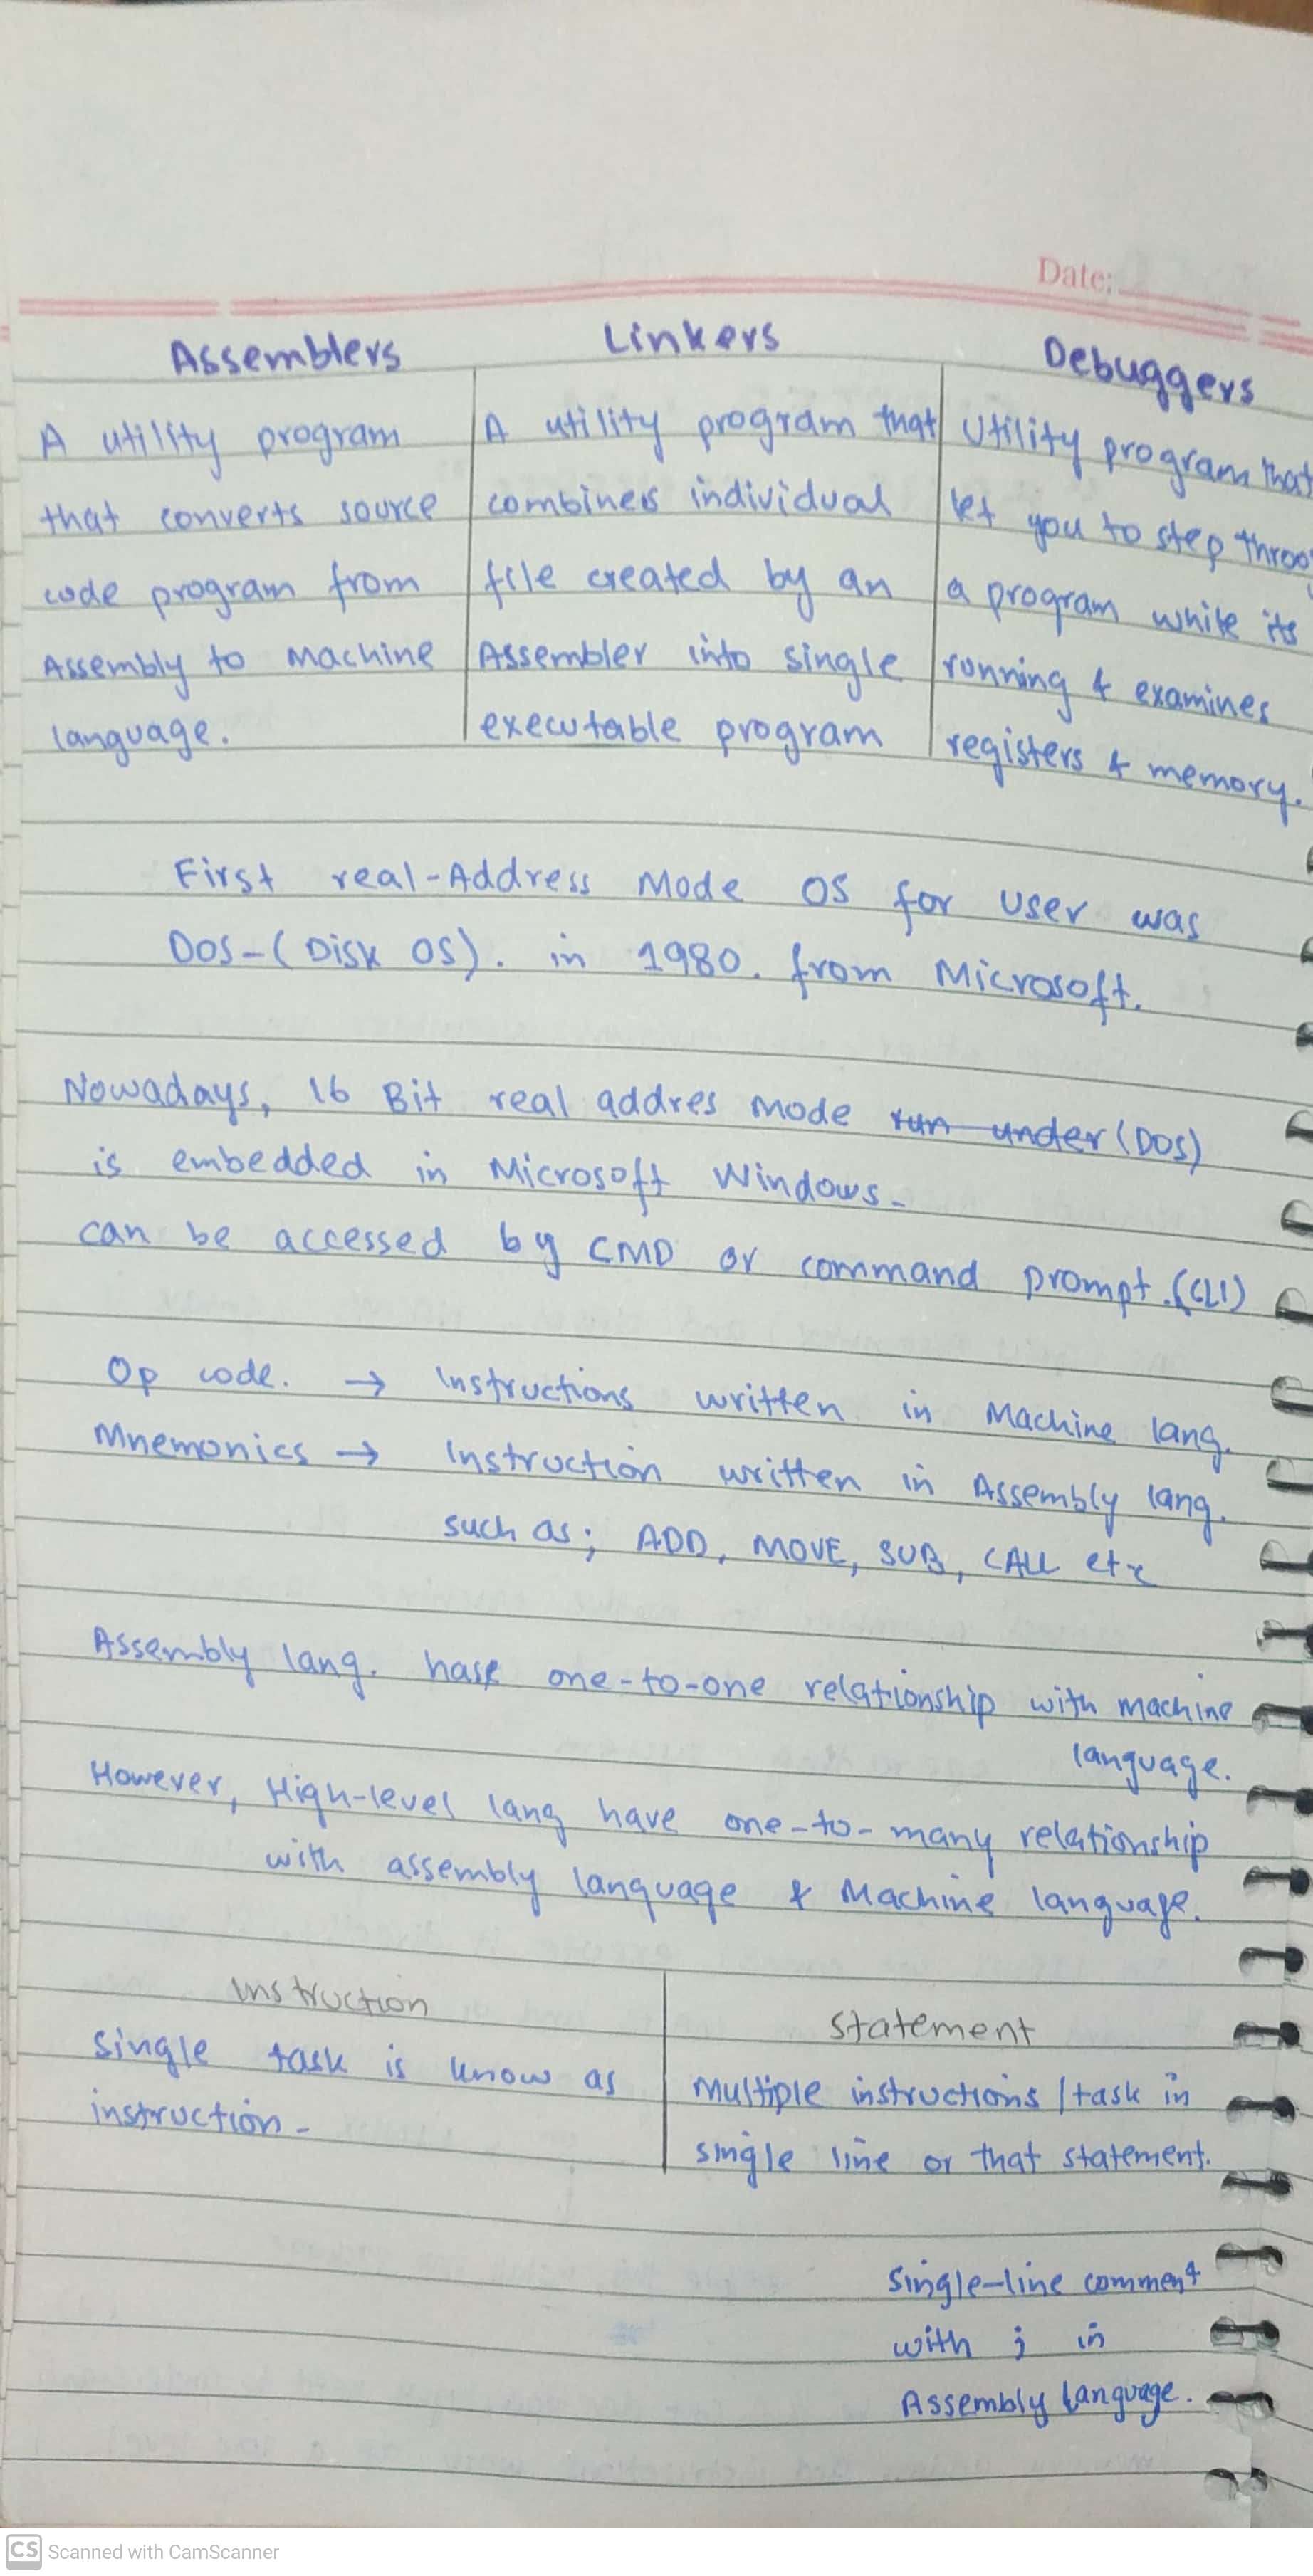 Date:
Assemblers
A utility program
that converts source
code program from
Assembly to Machine
language.
Linkers
A utility program that
combines individual
file created by an
Assembler into single
executable program
Debuggers
Utility program that
let you to step throo
a program while its
running & examines
registers & memory.
First real-Address Mode OS for user was
DOS-(Disk OS). in 1980. from Microsoft.
Nowadays, 16 Bit real addres mode run under (DOS)
is embedded in Microsoft Windows.
can be accessed by CMD or command prompt.(CLI)
Op code. → Instructions written in Machine lang.
Mnemonics → Instruction written in Assembly lang.
such as; ADD, MOVE, SUB, CALL etc
Assembly lang. has one-to-one relationship with machine
language.
However, High-level lang have one-to-many relationship
with assembly language & Machine language.
Instruction
Single task is know as
instruction.
Statement
Multiple instructions / task in
single line or that statement.
Single-line comment
with ; in
Assembly language.
CS Scanned with CamScanner